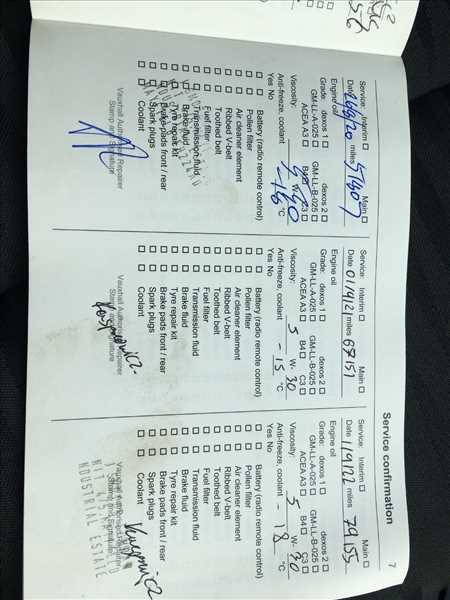 Service confirmation
7
Service: Interim □ Main □
Date miles 51907
Engine oil
Grade: dexos 1 □ dexos 2 □
GM-LL-A-025 □ GM-LL-B-025 □
ACEA A3 □ B4 □ C3 □
Viscosity: W-
Anti-freeze, coolant -16 °C
Yes No
□ □ Battery (radio remote control)
□ □ Pollen filter
□ □ Air cleaner element
□ □ Ribbed V-belt
□ □ Toothed belt
□ □ Fuel filter
□ □ Transmission fluid
□ □ Brake fluid
□ □ Tyre repair kit
□ □ Brake pads front / rear
□ □ Spark plugs
□ □ Coolant
Vauxhall Authorised Repairer
Stamp and Signature
Service: Interim □ Main □
Date 01/9/21 miles 67151
Engine oil
Grade: dexos 1 □ dexos 2 □
GM-LL-A-025 □ GM-LL-B-025 □
ACEA A3 □ B4 □ C3 □
Viscosity: 5 W- 30
Anti-freeze, coolant -15 °C
Yes No
□ □ Battery (radio remote control)
□ □ Pollen filter
□ □ Air cleaner element
□ □ Ribbed V-belt
□ □ Toothed belt
□ □ Fuel filter
□ □ Transmission fluid
□ □ Brake fluid
□ □ Tyre repair kit
□ □ Brake pads front / rear
□ □ Spark plugs
□ □ Coolant
Vauxhall Authorised Repairer
Stamp and Signature
Service: Interim □ Main □
Date 1/9/22 miles 79155
Engine oil
Grade: dexos 1 □ dexos 2 □
GM-LL-A-025 □ GM-LL-B-025 □
ACEA A3 □ B4 □ C3 □
Viscosity: 5 W- 30
Anti-freeze, coolant -18 °C
Yes No
□ □ Battery (radio remote control)
□ □ Pollen filter
□ □ Air cleaner element
□ □ Ribbed V-belt
□ □ Toothed belt
□ □ Fuel filter
□ □ Transmission fluid
□ □ Brake fluid
□ □ Tyre repair kit
□ □ Brake pads front / rear
□ □ Spark plugs
□ □ Coolant
Vauxhall Authorised Repairer
Stamp and Signature
INDUSTRIAL ESTATE